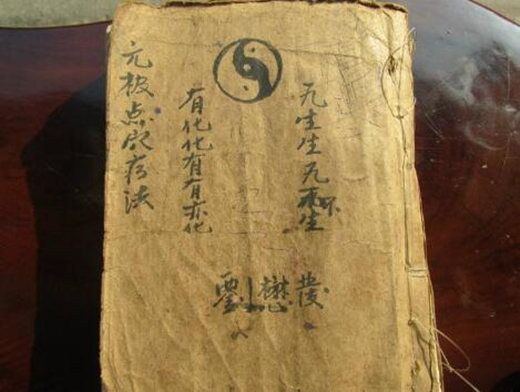 无生生无不生
有化化有有亦化
元极点存法
劉懋